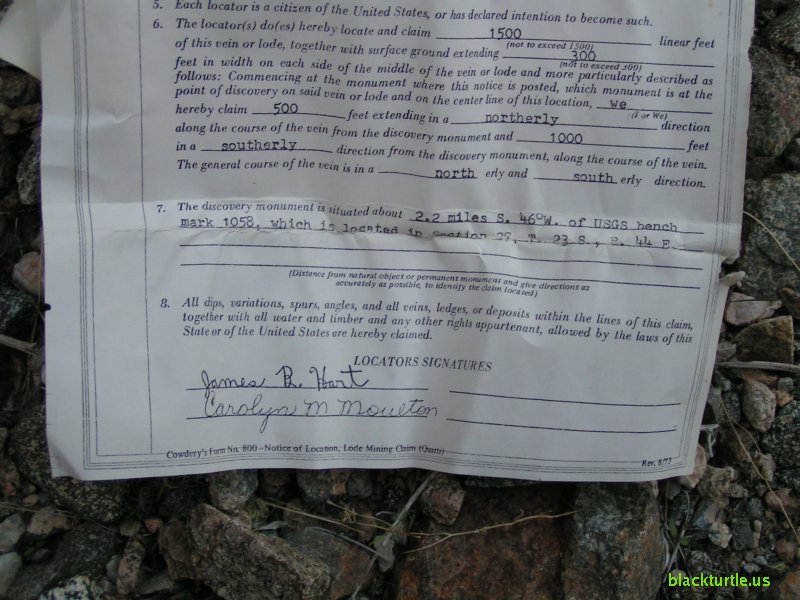 5. Each locator is a citizen of the United States, or has declared intention to become such.
6. The locator(s) do(es) hereby locate and claim 1500 linear feet
(not to exceed 1500)
of this vein or lode, together with surface ground extending 300
(not to exceed 300)
feet in width on each side of the middle of the vein or lode and more particularly described as
follows: Commencing at the monument where this notice is posted, which monument is at the
point of discovery on said vein or lode and on the center line of this location, we
(I or We)
hereby claim 500 feet extending in a northerly direction
along the course of the vein from the discovery monument and 1000 feet
in a southerly direction from the discovery monument, along the course of the vein.
The general course of the vein is in a north erly and south erly direction.
7. The discovery monument is situated about 2.2 miles S. 46°W. of USGS bench
mark 1058, which is located in Section 27, T. 23 S., R. 44 E.
(Distance from natural object or permanent monument and give directions as
accurately as possible, to identify the claim located)
8. All dips, variations, spurs, angles, and all veins, ledges, or deposits within the lines of this claim,
together with all water and timber and any other rights appurtenant, allowed by the laws of this
State or of the United States are hereby claimed.
LOCATORS SIGNATURES
James R. Hart
Carolyn M Moulton
Cowdery's Form No. 800—Notice of Location, Lode Mining Claim (Quartz)
Rev. 8/73
blackturtle.us